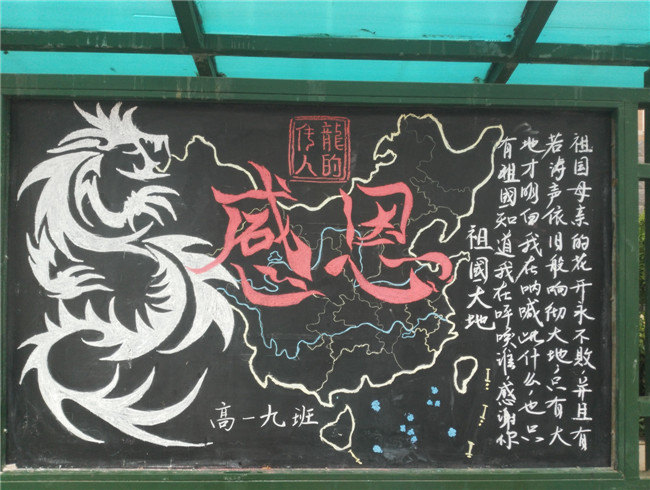 龍的
传人
感恩
祖国母亲的花开永不败,并且有
若涛声依旧般响彻大地,只有大
地才明白我在呐喊些什么,也只
有祖國知道我在呼唤谁,感谢你
祖國大地
高一九班